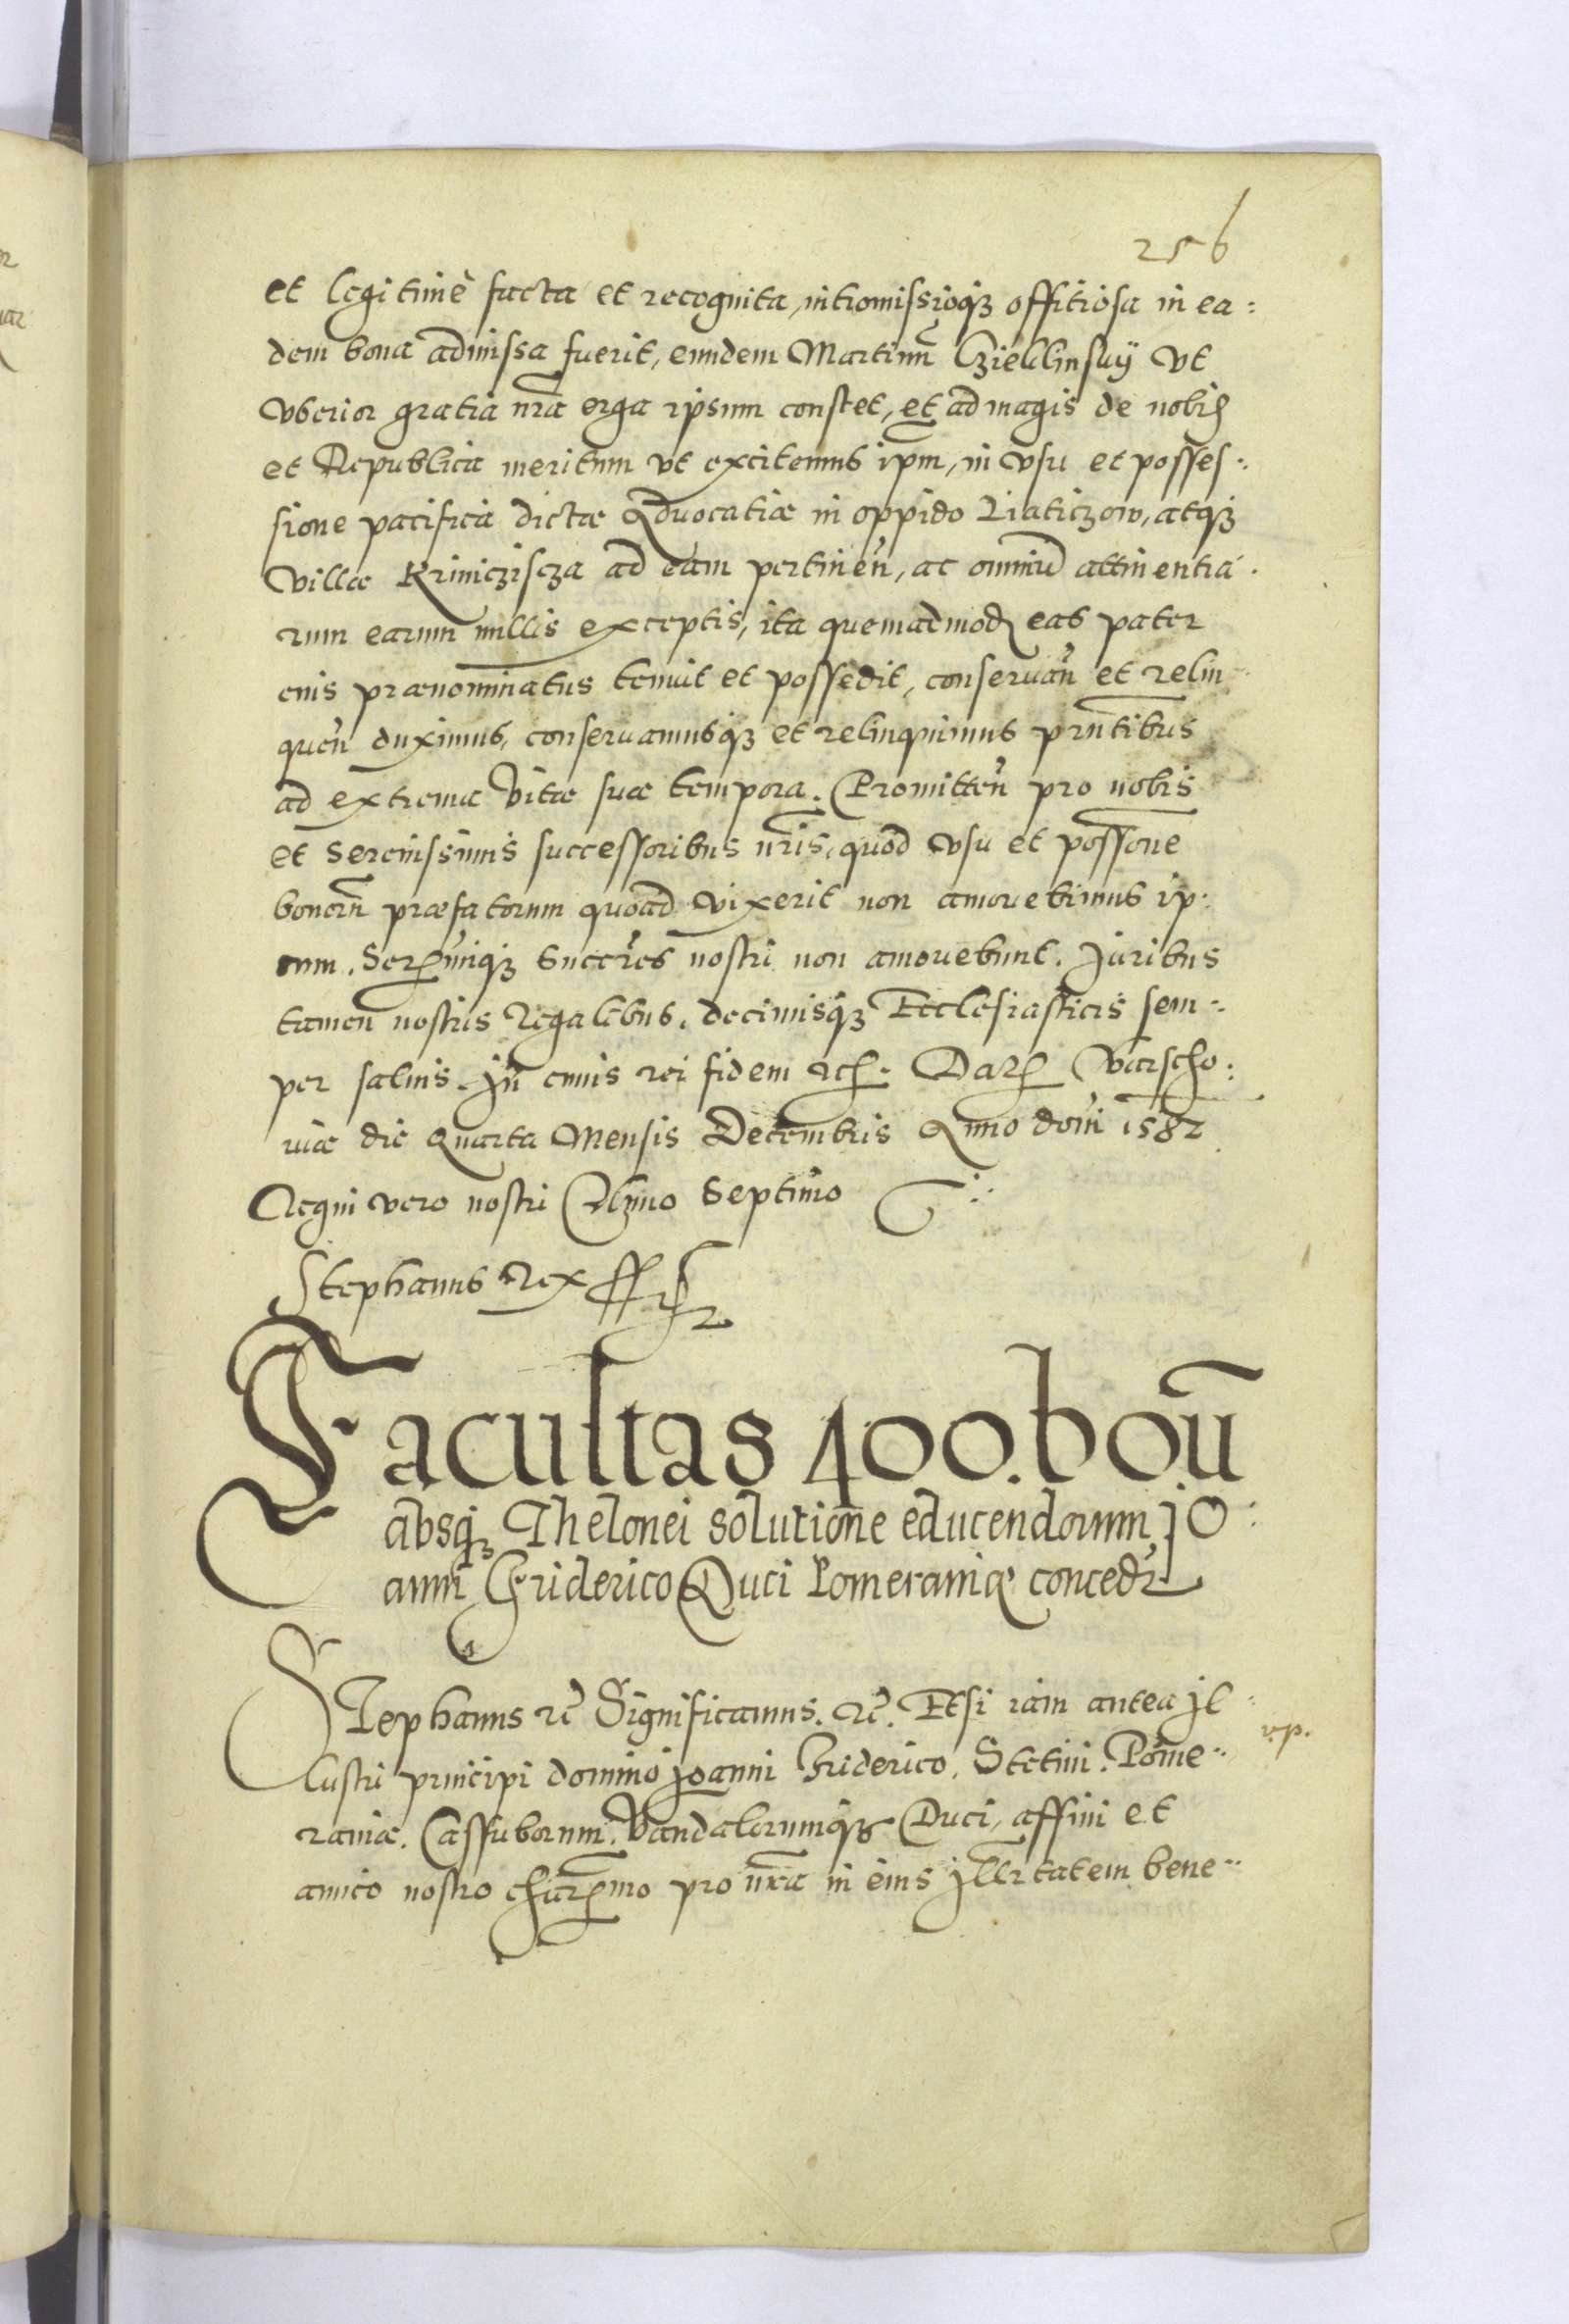 256
et legitimè facta et recognita, intromissioq₃ offitiosa in ea:
dem bona admissa fuerit, eundem Martinũ Chiellinskÿ vt
vberior gratia nr̃a erga ipsum constet, et ad magis de nobis
et Republica meritum vt excitemus ipm̃, in vsu et posses:
sione pacifica dictæ Aduocatiæ in oppido Liaticzow, atq₃
villæ Krinicziscza ad eam pertineñ, ac omniũ attinentia
rum earum nullis exceptis, ita quemadmodũ eas pater
eius prænominatus tenuit et possedit, conseruañ et relin
queñ duximus, conseruamusq₃ et relinquimus prñtibus
ad extrema vitæ suæ tempora. Promitteñ pro nobis
et Serenissimis successoribus nr̃is, quod vsu et possone
bonorũ præfatorum quoad vixerit non amouebimus ip:
sum. Serᵐⁱq₃ Succr̃es nostri non amouebunt. Juribus
tamen nostris Regalibus, decimisq₃ Ecclesiasticis sem:
per saluis. In cuius rei fidem etc. Dat Varscho:
uiæ die Quarta Mensis Decembris Anno dom̃i 1582.
Regni vero nostri Anno Septimo
Stephanus Rex
Facultas 400. boũ
absq₃ Thelonei solutione educendorum Jo:
anni Friderico Duci Pomeraniæ conceditr
Stephanus etc̃ Significamus. etc̃. Etsi iam antea Il:
v.p.
lustri principi domino Joanni Friderico, Stetini. Pome:
raniæ. Cassuborum. Vandalorumq₃ Duci, affini et
amico nostro charᵐᵒ pro nr̃a in eius Illr̃tatem bene: